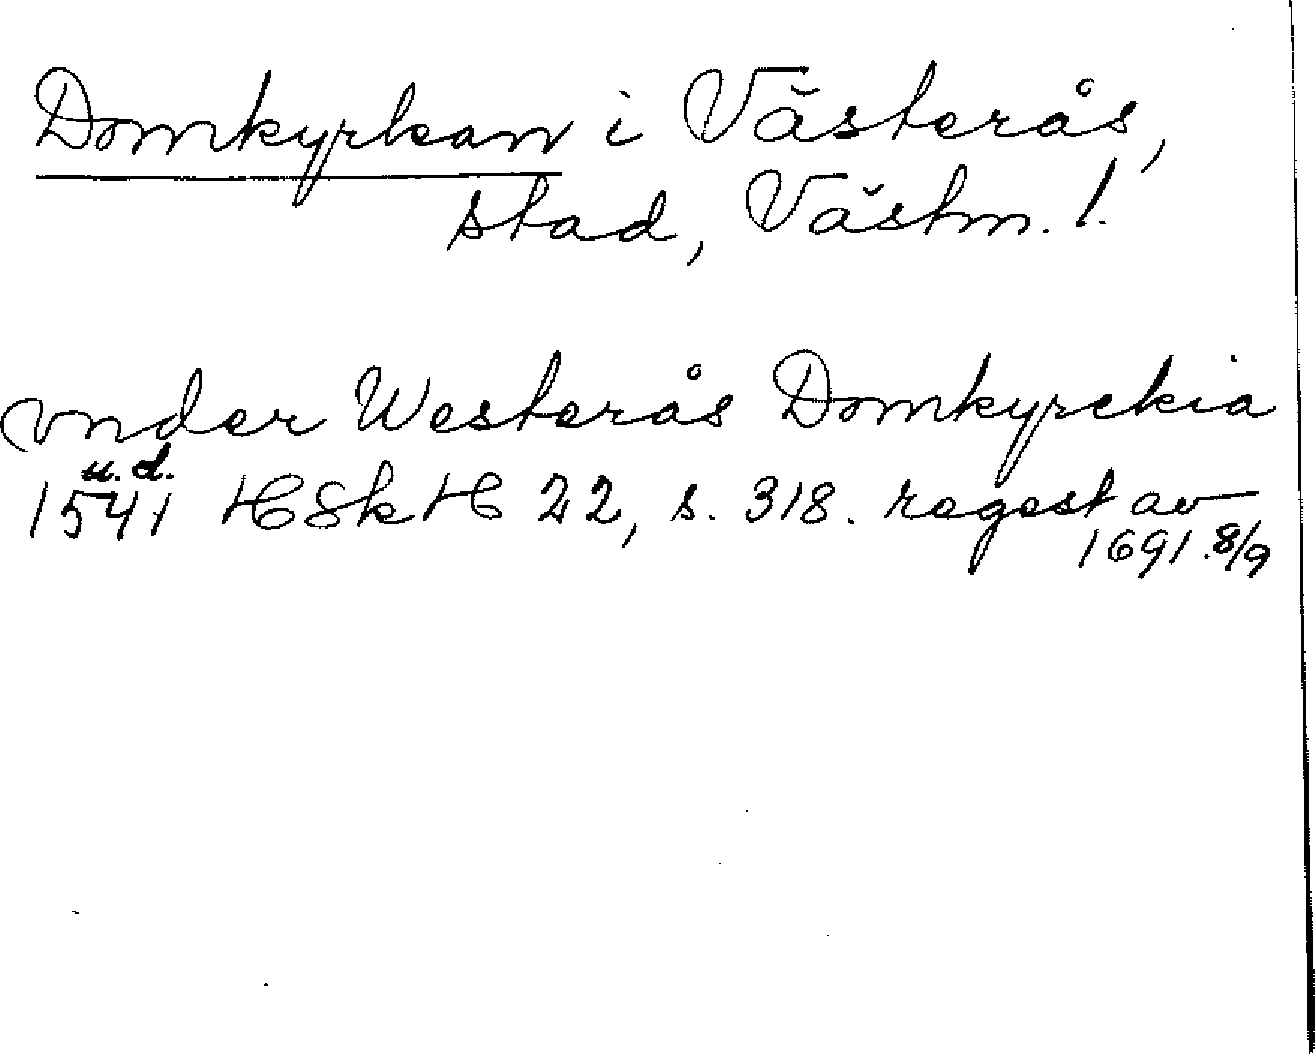 Domkyrkan i Västerås,
stad, Västm. l.
vnder Westerås Domkyrckia
u.d.
1541 HSkH 22, s. 318. regest av
1691.8/9